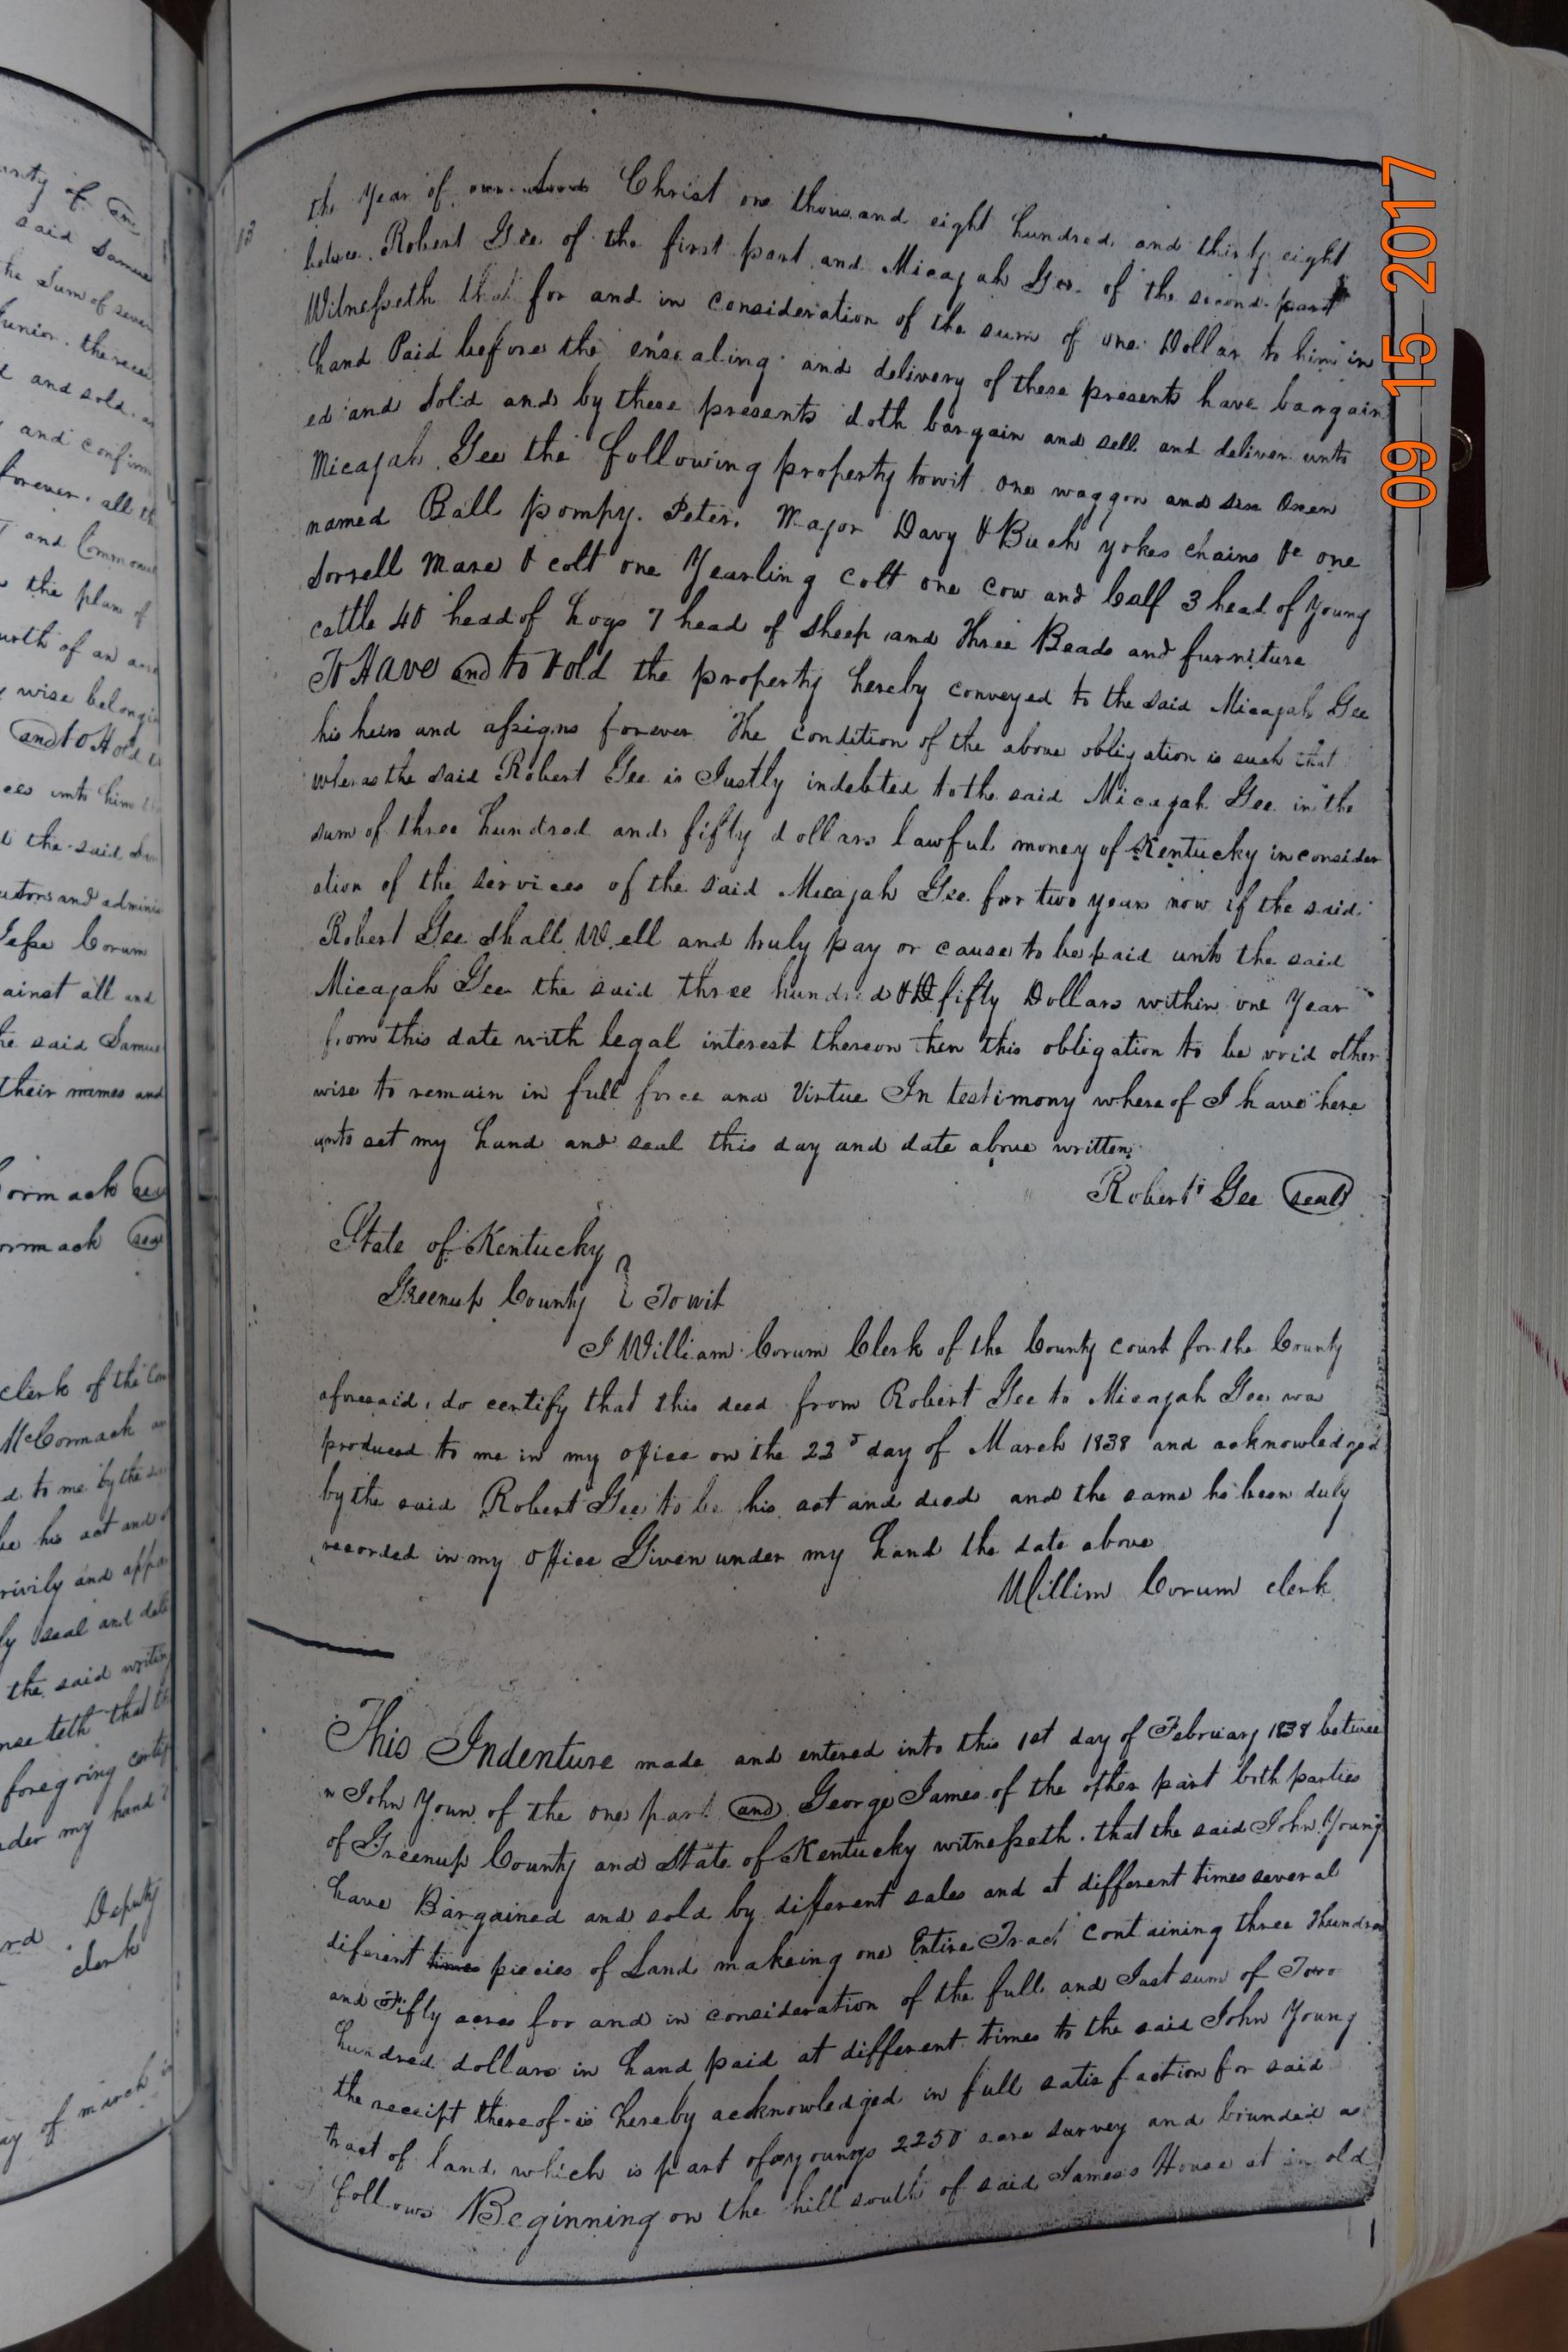 the Year of our Lord Christ one thousand eight hundred and thirty eight
betwee Robert Gee of the first part and Micajah Gee of the second part
Witnesseth that for and in consideration of the sum of one Dollar to him in
hand Paid before the ensealing and delivery of these presents have bargain
ed and Sold and by these presents doth bargain and sell and deliver unto
Micajah Gee the following property towit one waggon and six Oxen
named Ball pompy. Peter. Major Davy & Buck yokes chains &c one
Sorrell Mare & colt one Yearling colt one cow and Calf 3 head of Young
cattle 40 head of hogs 7 head of sheep and Three Beads and furniture
To Have and to Hold the property hereby conveyed to the said Micajah Gee
his heirs and assigns forever The condition of the above obligation is such that
whereas the said Robert Gee is Justly indebted to the said Micajah Gee in the
sum of three hundred and fifty dollars lawful money of Kentucky in consider
ation of the services of the said Micajah Gee for two years now if the said
Robert Gee shall Well and truly pay or cause to be paid unto the said
Micajah Gee the said three hundred & fifty Dollars within one Year
from this date with legal interest thereon then this obligation to be void other
wise to remain in full force and Virtue In testimony whereof I have here
unto set my hand and seal this day and date above written
Robert Gee seal
State of Kentucky
Greenup County } Towit
I William Corum Clerk of the County court for the County
aforesaid, do certify that this deed from Robert Gee to Micajah Gee wa
produced to me in my office on the 23d day of March 1838 and acknowledged
by the said Robert Gee to be his act and deed and the same hs been duly
recorded in my office Given under my hand the date above
Willim Corum clerk
This Indenture made and entered into this 1st day of February 1838 betwee
n John Youn of the one part and George James of the other part both parties
of Greenup County and State of Kentucky witnesseth. that the said John Young
have Bargained and sold by different sales and at different times several
diferent times piecies of Land makeing one Entire Tract containing three Hundred
and Fifty acres for and in consideration of the full and Just sum of Two
hundred dollars in hand paid at different times to the said John Young
the receipt thereof is hereby acknowledged in full satisfaction for said
tract of land which is part of youngs 2250 acre survey and bounded as
follows Beginning on the hill south of said James's House at an old
09 15 2017
said Samue
the Sum of seven
Junior. the recei
d and sold. a
and confirm
forever. all th
and Common
the plan of
wise belongin
and to Hold
unto him
d the said
utors and admini
Jesse Corum
ainst all and
he said Samue
their names and
ormack seal
ormack seal
clerk of the Cou
McCormack an
d to me by the
be his act and
rivily and appa
ly seal and deli
the said writin
foregoing certif
nder my hand
Deputy
clerk
ay of march